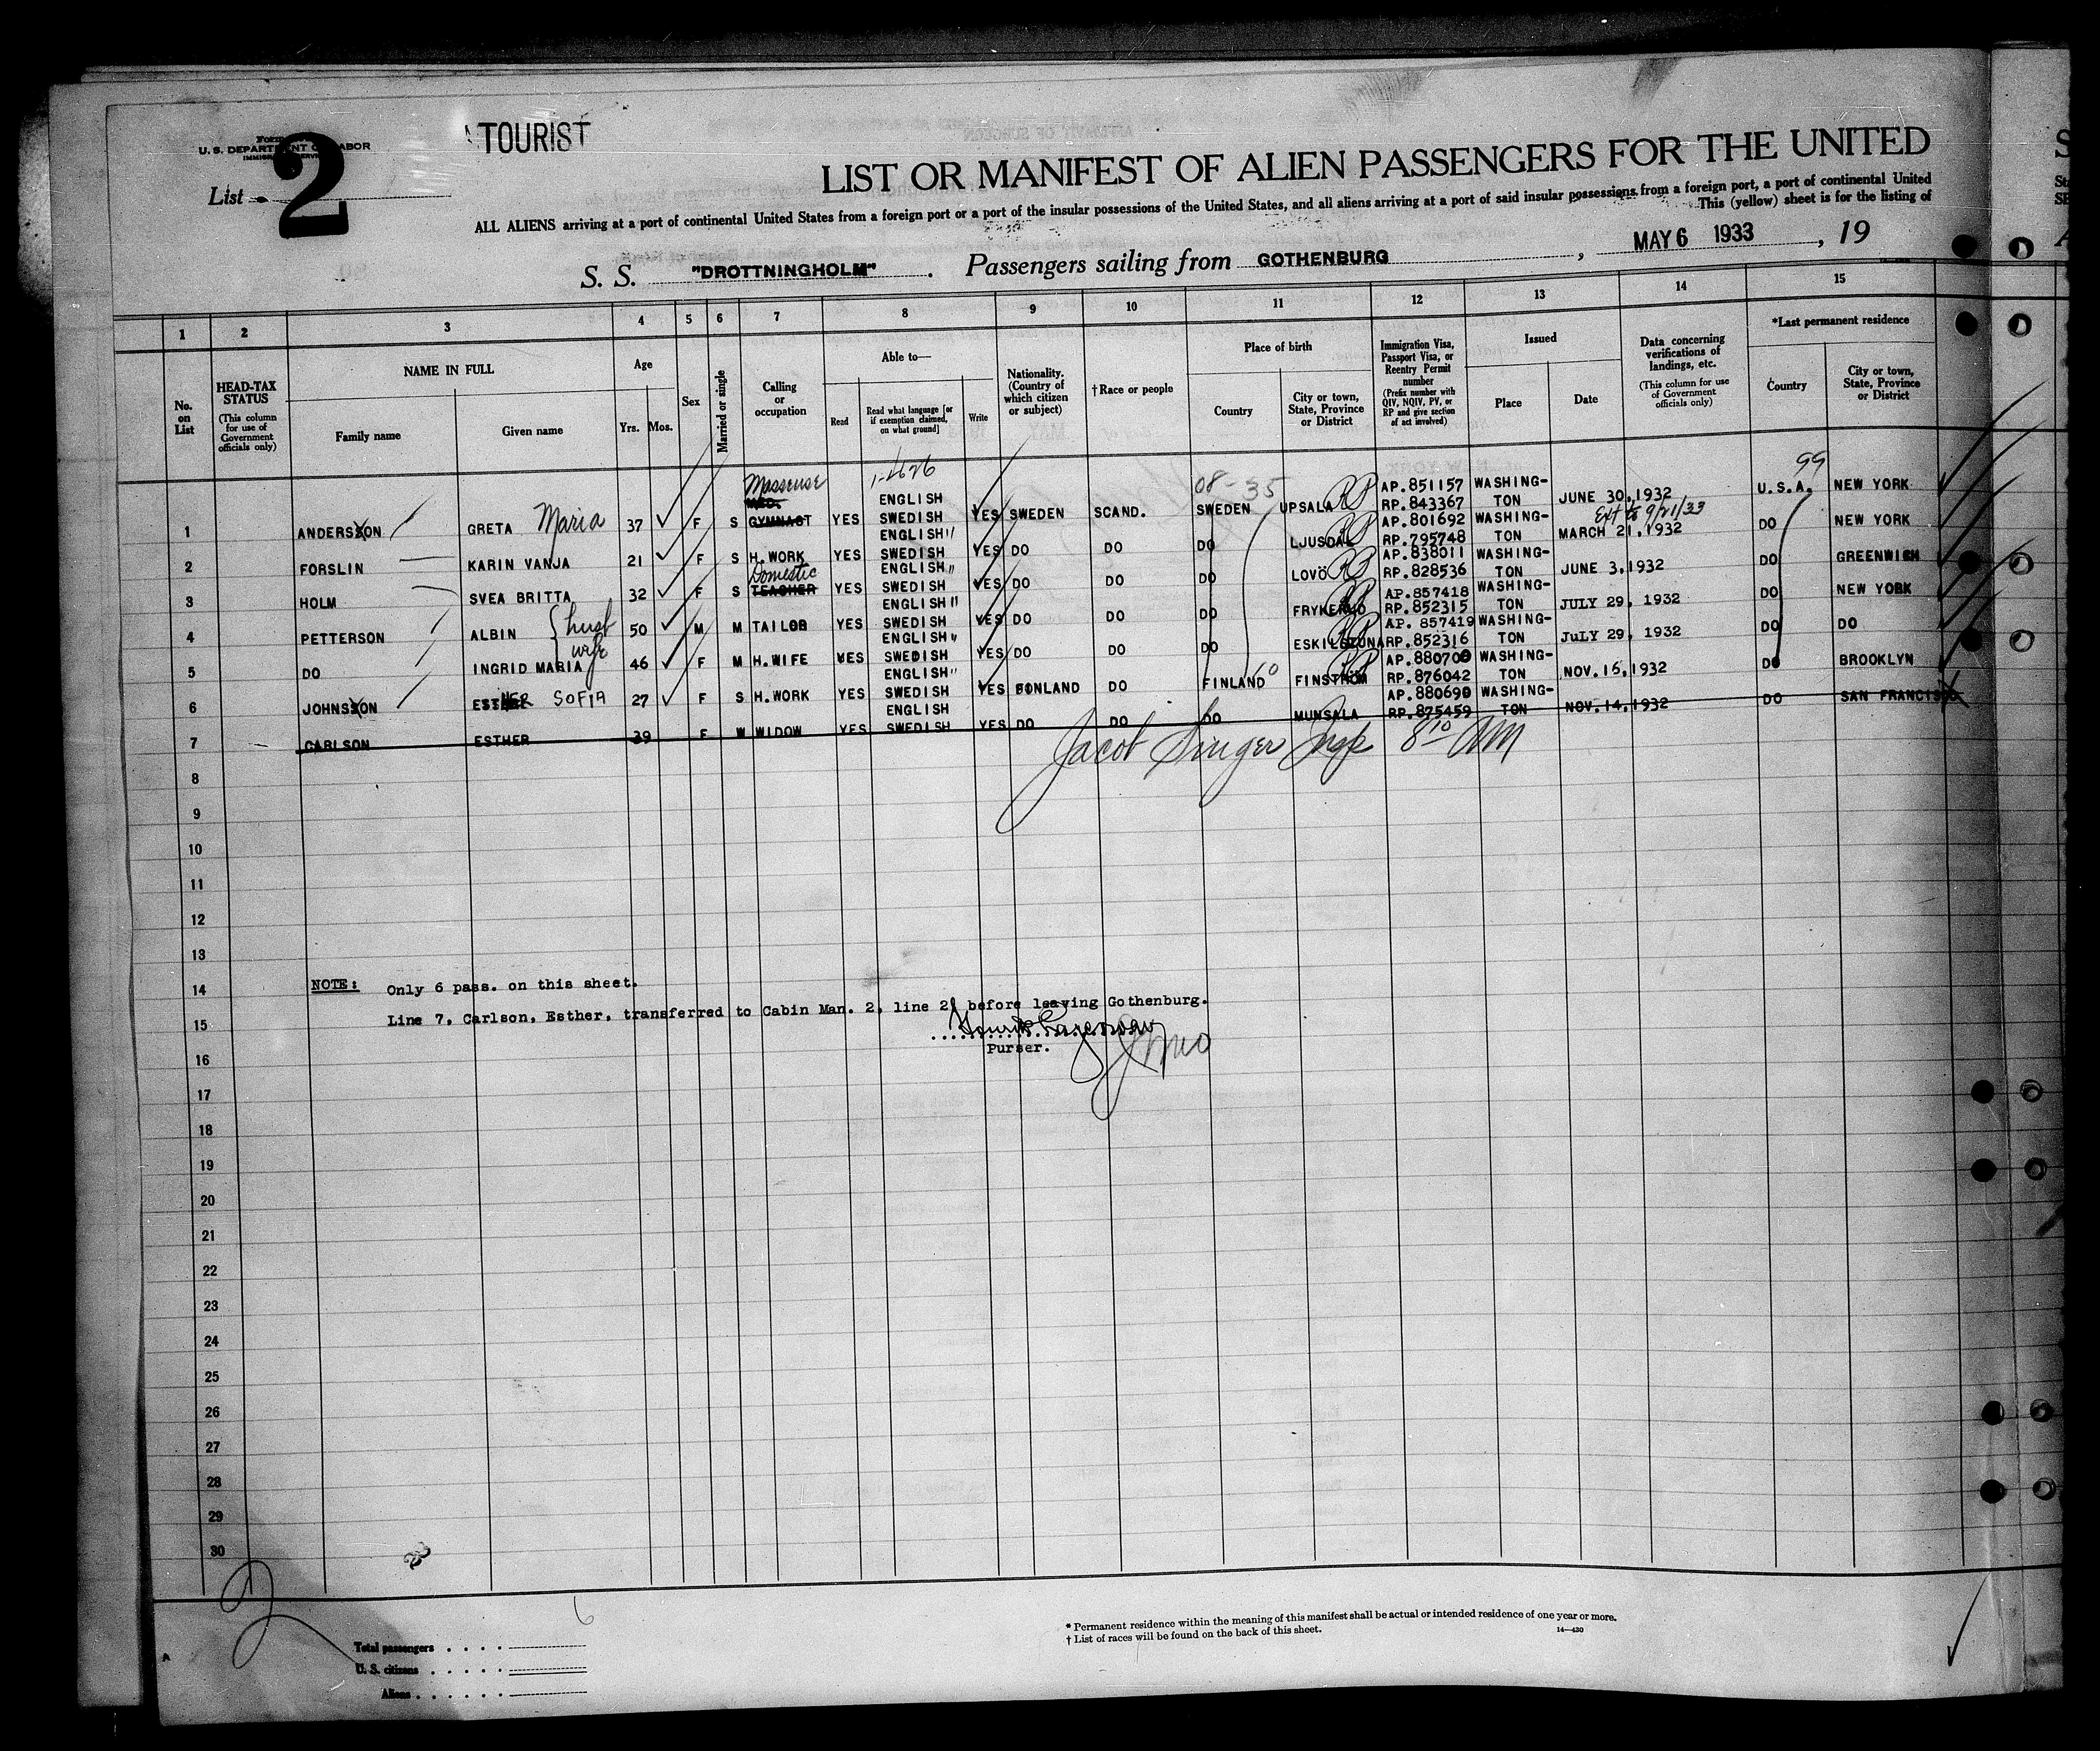 TOURIST
U. S. DEPARTMENT OF LABOR
List 2
LIST OR MANIFEST OF ALIEN PASSENGERS FOR THE UNITED
ALL ALIENS arriving at a port of continental United States from a foreign port or a port of the insular possessions of the United States, and all aliens arriving at a port of said insular possessions from a foreign port, a port of continental United
This (yellow) sheet is for the listing of
S. S. "DROTTNINGHOLM" . Passengers sailing from GOTHENBURG , MAY 6 1933 , 19
1 2 3 4 5 6 7 8 9 10 11 12 13 14 15
No. on List
HEAD-TAX STATUS (This column for use of Government officials only)
NAME IN FULL
Family name Given name
Age
Yrs. Mos.
Sex
Married or single
Calling or occupation
Able to—
Read Read what language [or if exemption claimed, on what ground] Write
Nationality. (Country of which citizen or subject)
† Race or people
Place of birth
Country City or town, State, Province or District
Immigration Visa, Passport Visa, or Reentry Permit number (Prefix number with QIV, NQIV, PV, or RP and give section of act involved)
Issued
Place Date
Data concerning verifications of landings, etc. (This column for use of Government officials only)
*Last permanent residence
Country City or town, State, Province or District
1-2626 08-35 99
1 ANDERSSON GRETA Maria 37 F S Masseuse MED. GYMNAST YES ENGLISH SWEDISH YES SWEDEN SCAND. SWEDEN UPSALA RP AP.851157 RP.843367 WASHINGTON JUNE 30,1932 U.S.A. NEW YORK
2 FORSLIN KARIN VANJA 21 F S H.WORK YES ENGLISH SWEDISH YES DO DO DO LJUSDAL RP AP.801692 RP.795748 WASHINGTON MARCH 21,1932 Ext to 9/21/33 DO NEW YORK
3 HOLM SVEA BRITTA 32 F S Domestic TEACHER YES ENGLISH SWEDISH YES DO DO DO LOVÖ RP AP.838011 RP.828536 WASHINGTON JUNE 3,1932 DO GREENWICH
4 PETTERSON ALBIN husb 50 M M TAILOR YES ENGLISH SWEDISH YES DO DO DO FRYKERUD RP AP.857418 RP.852315 WASHINGTON JULY 29, 1932 DO NEW YORK
5 DO INGRID MARIA wife 46 F M H.WIFE YES ENGLISH SWEDISH YES DO DO DO ESKILSTUNA RP AP. 857419 RP.852316 WASHINGTON JULY 29, 1932 DO DO
6 JOHNSSON ESTHER SOFIA 27 F S H.WORK YES ENGLISH SWEDISH YES FINLAND DO FINLAND FINSTROM RP AP.880700 RP.876042 WASHINGTON NOV.15,1932 DO BROOKLYN
7 CARLSON ESTHER 39 F W WIDOW YES ENGLISH SWEDISH YES DO DO DO MUNSALA AP.880690 RP.875459 WASHINGTON NOV.14,1932 DO SAN FRANCISCO
Jacob Singer Insp 8 10 AM
8
9
10
11
12
13
14 NOTE: Only 6 pass. on this sheet.
15 Line 7, Carlson, Esther, transferred to Cabin Man. 2, line 2, before leaving Gothenburg.
16 Purser.
17
18
19
20
21
22
23
24
25
26
27
28
29
30
6
* Permanent residence within the meaning of this manifest shall be actual or intended residence of one year or more.
† List of races will be found on the back of this sheet.
14—430
Total passengers
U. S. citizens
Aliens